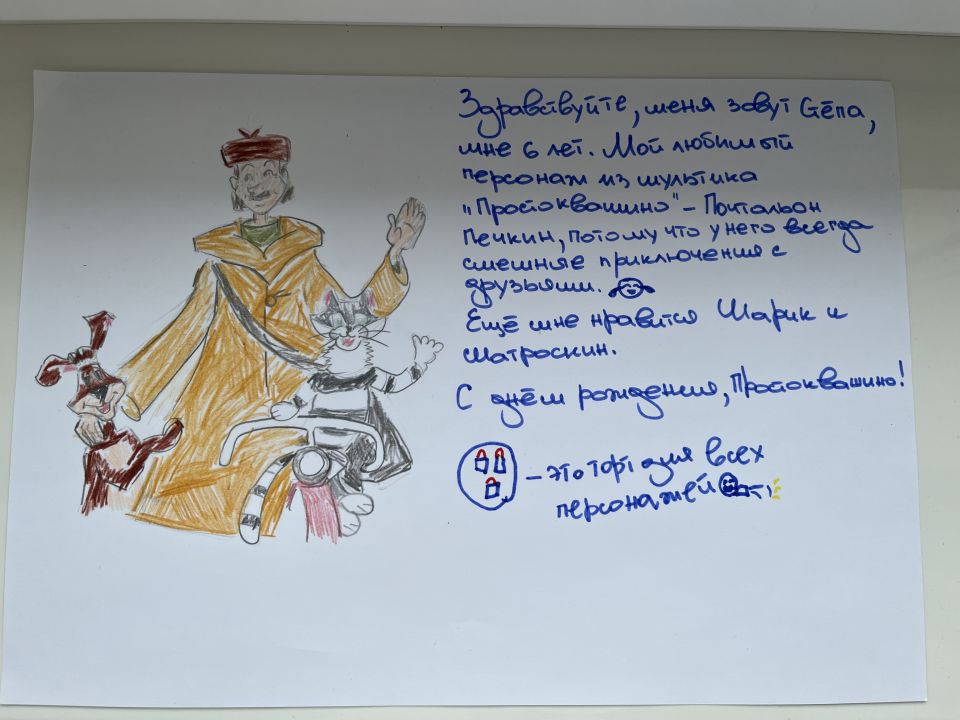 Здравствуйте, меня зовут Стёпа,
мне 6 лет. Мой любимый
персонаж из мультика
"Простоквашино" - Почтальон
Печкин, потому что у него всегда
смешняе приключения с
друзьями.
Ещё мне нравится Шарик и
Матроскин.
С днём рождения, Простоквашино!
- это торт для всех
персонажей